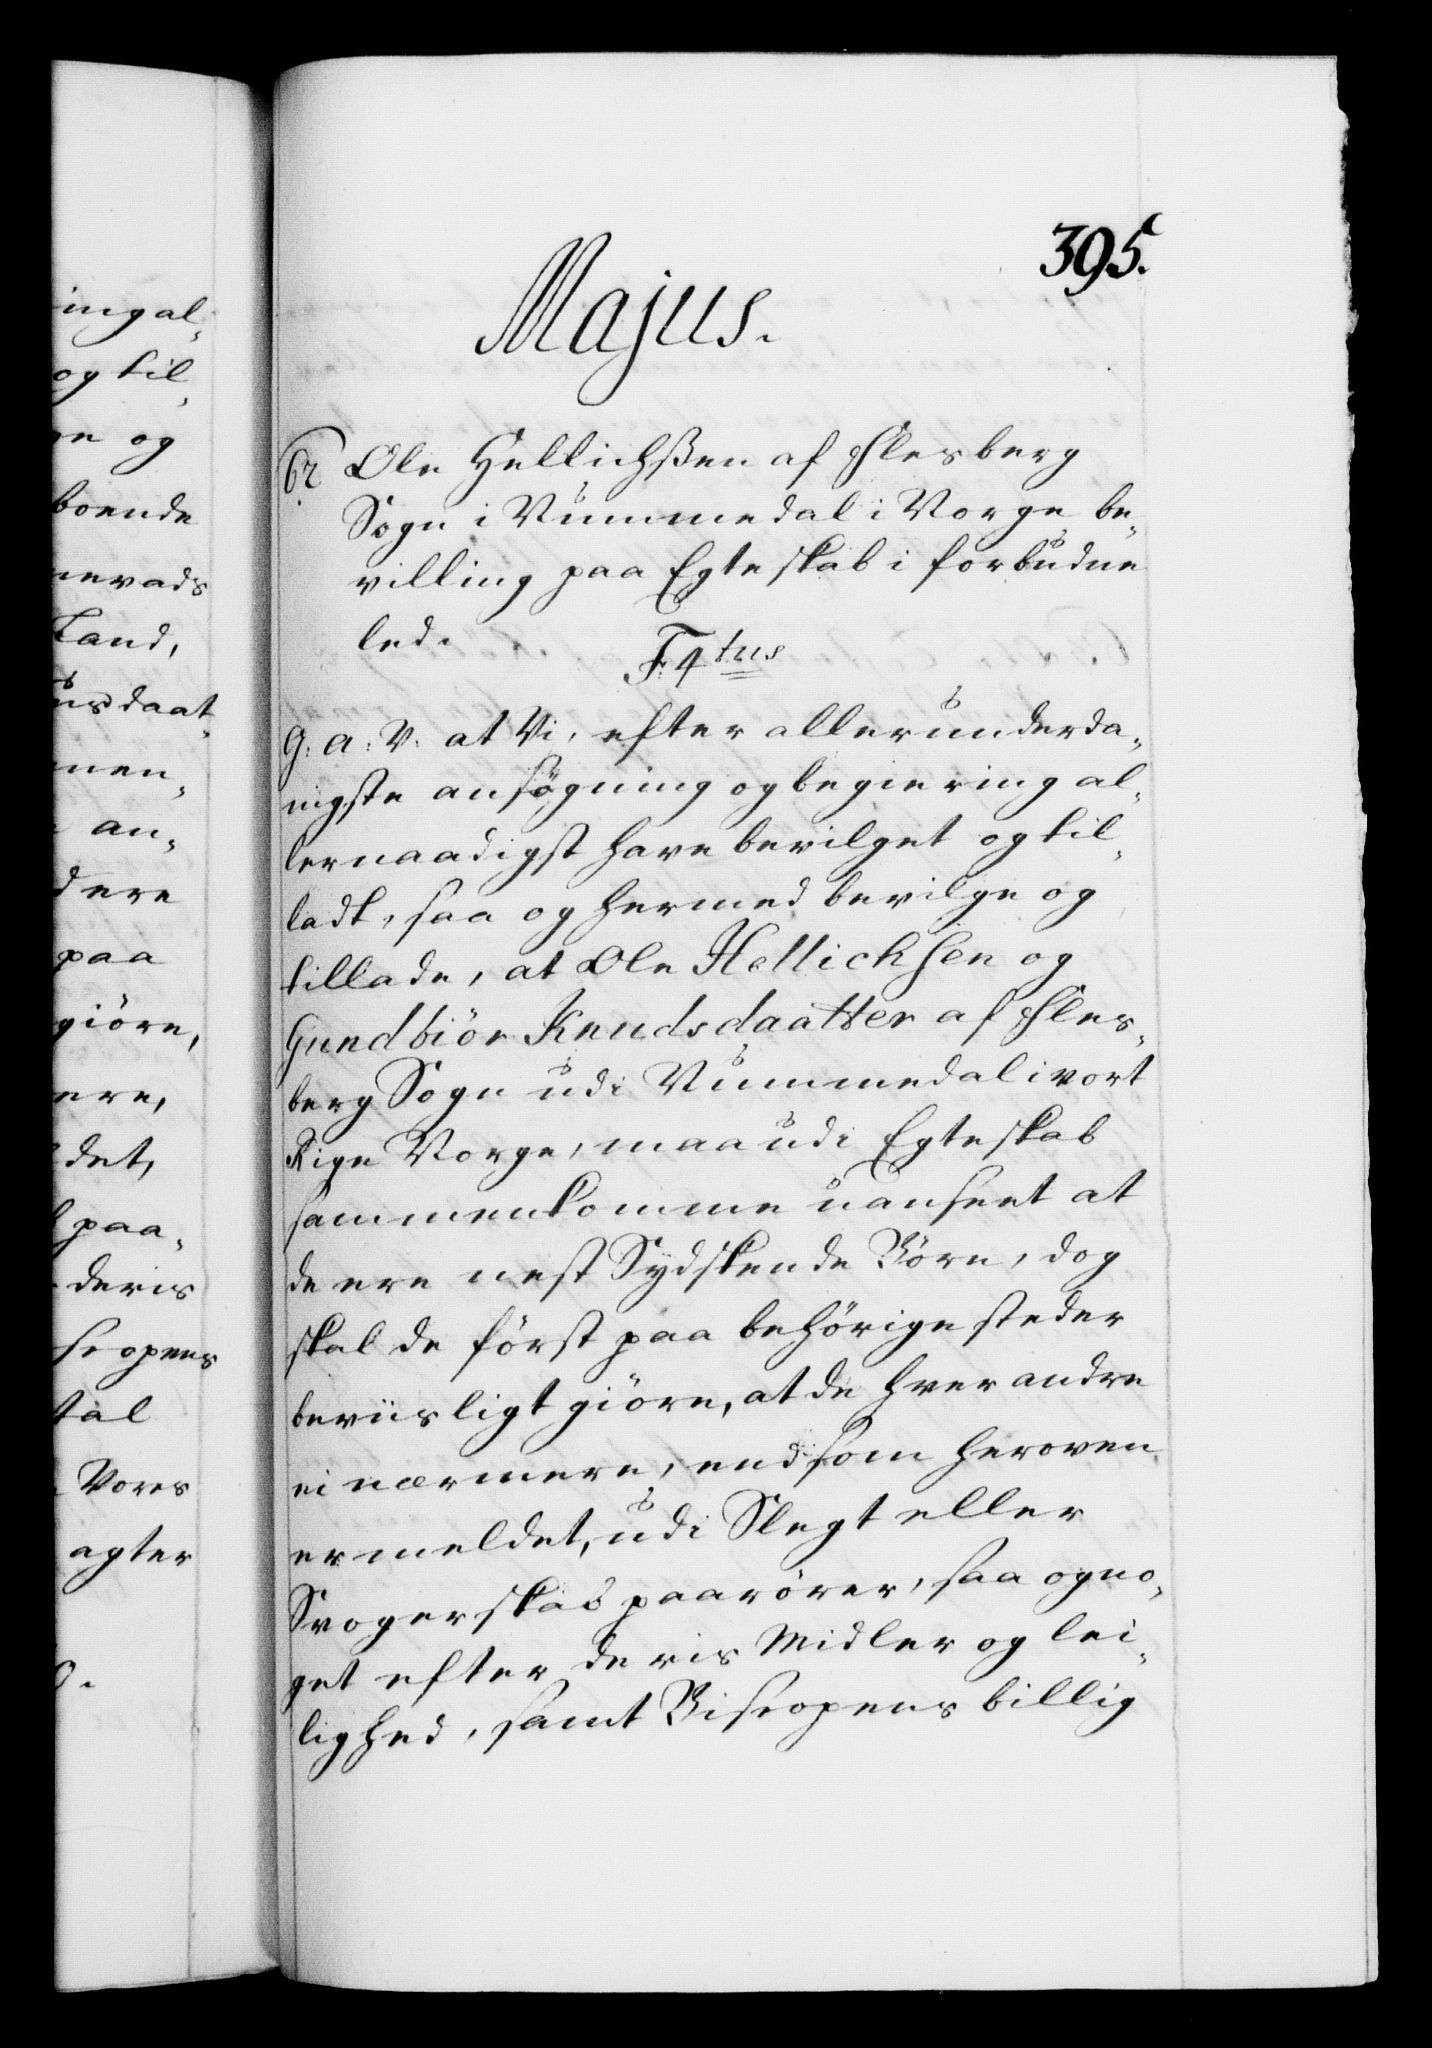 ing al-
og til-
ge og
boende
nevads
Land,
usdaat-
men-
an-
dere
paa
giöre,
ere,
det,
paa-
deris
scopens
tal
Vores
agter
395.
Majus.
62 Ole Hellichßen af Flesberg
Sogn i Nummedal i Norge be-
villing paa Egteskab i forbudne
led.
F. 4tus
G: A: V: at Vi, efter allerunderda-
nigste ansøgning og begiering al-
lernaadigst have bevilget og til-
ladt, saa og hermed bevilge og
tillade, at Ole Hellichsen og
Gundbiör Knudsdaatter af Fles-
berg Sogn udi Nummedal i vort
Rige Norge, maa udi Egteskab
sammenkomme uanseet at
de ere nest Sydskende Börn, dog
skal de först paa behörige steder
beviisligt giöre, at de hver andre
ei nærmere, end som heroven
er meldet, udi Slegt eller
Svogerskab paarörer, saa og no-
get efter deris Midler og lei-
lighed, samt Biscopens billig